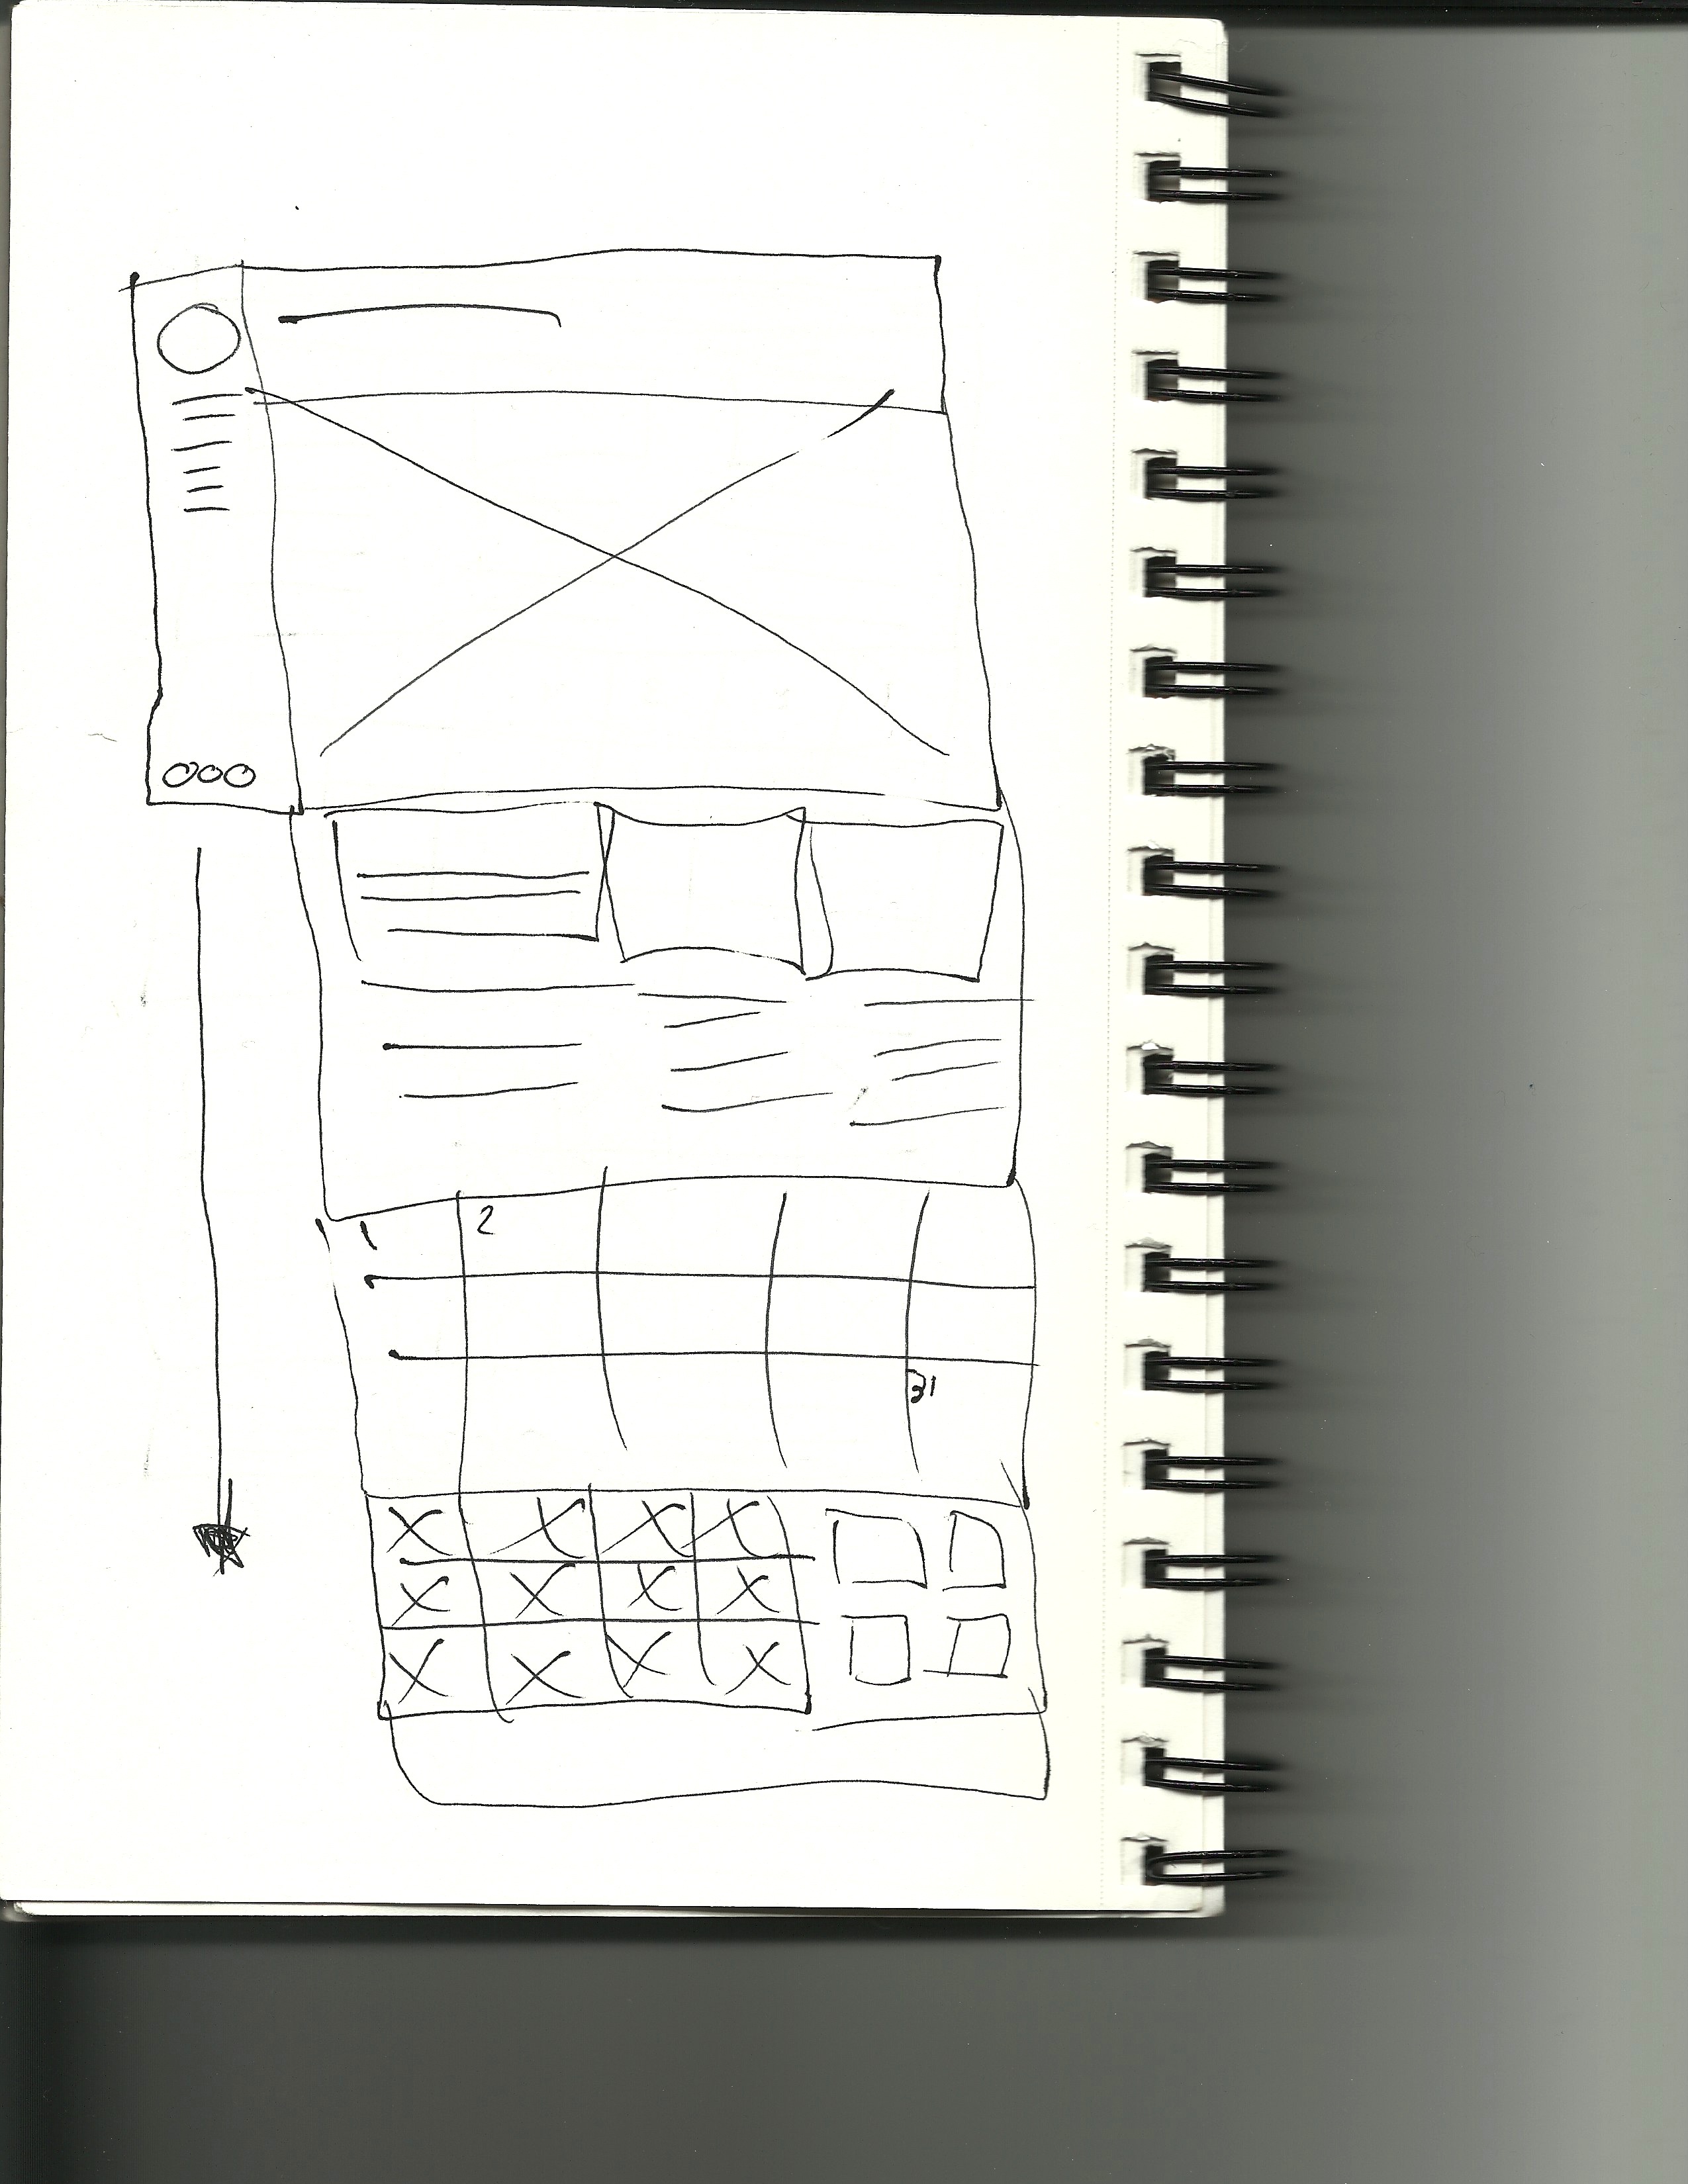 1 2
31